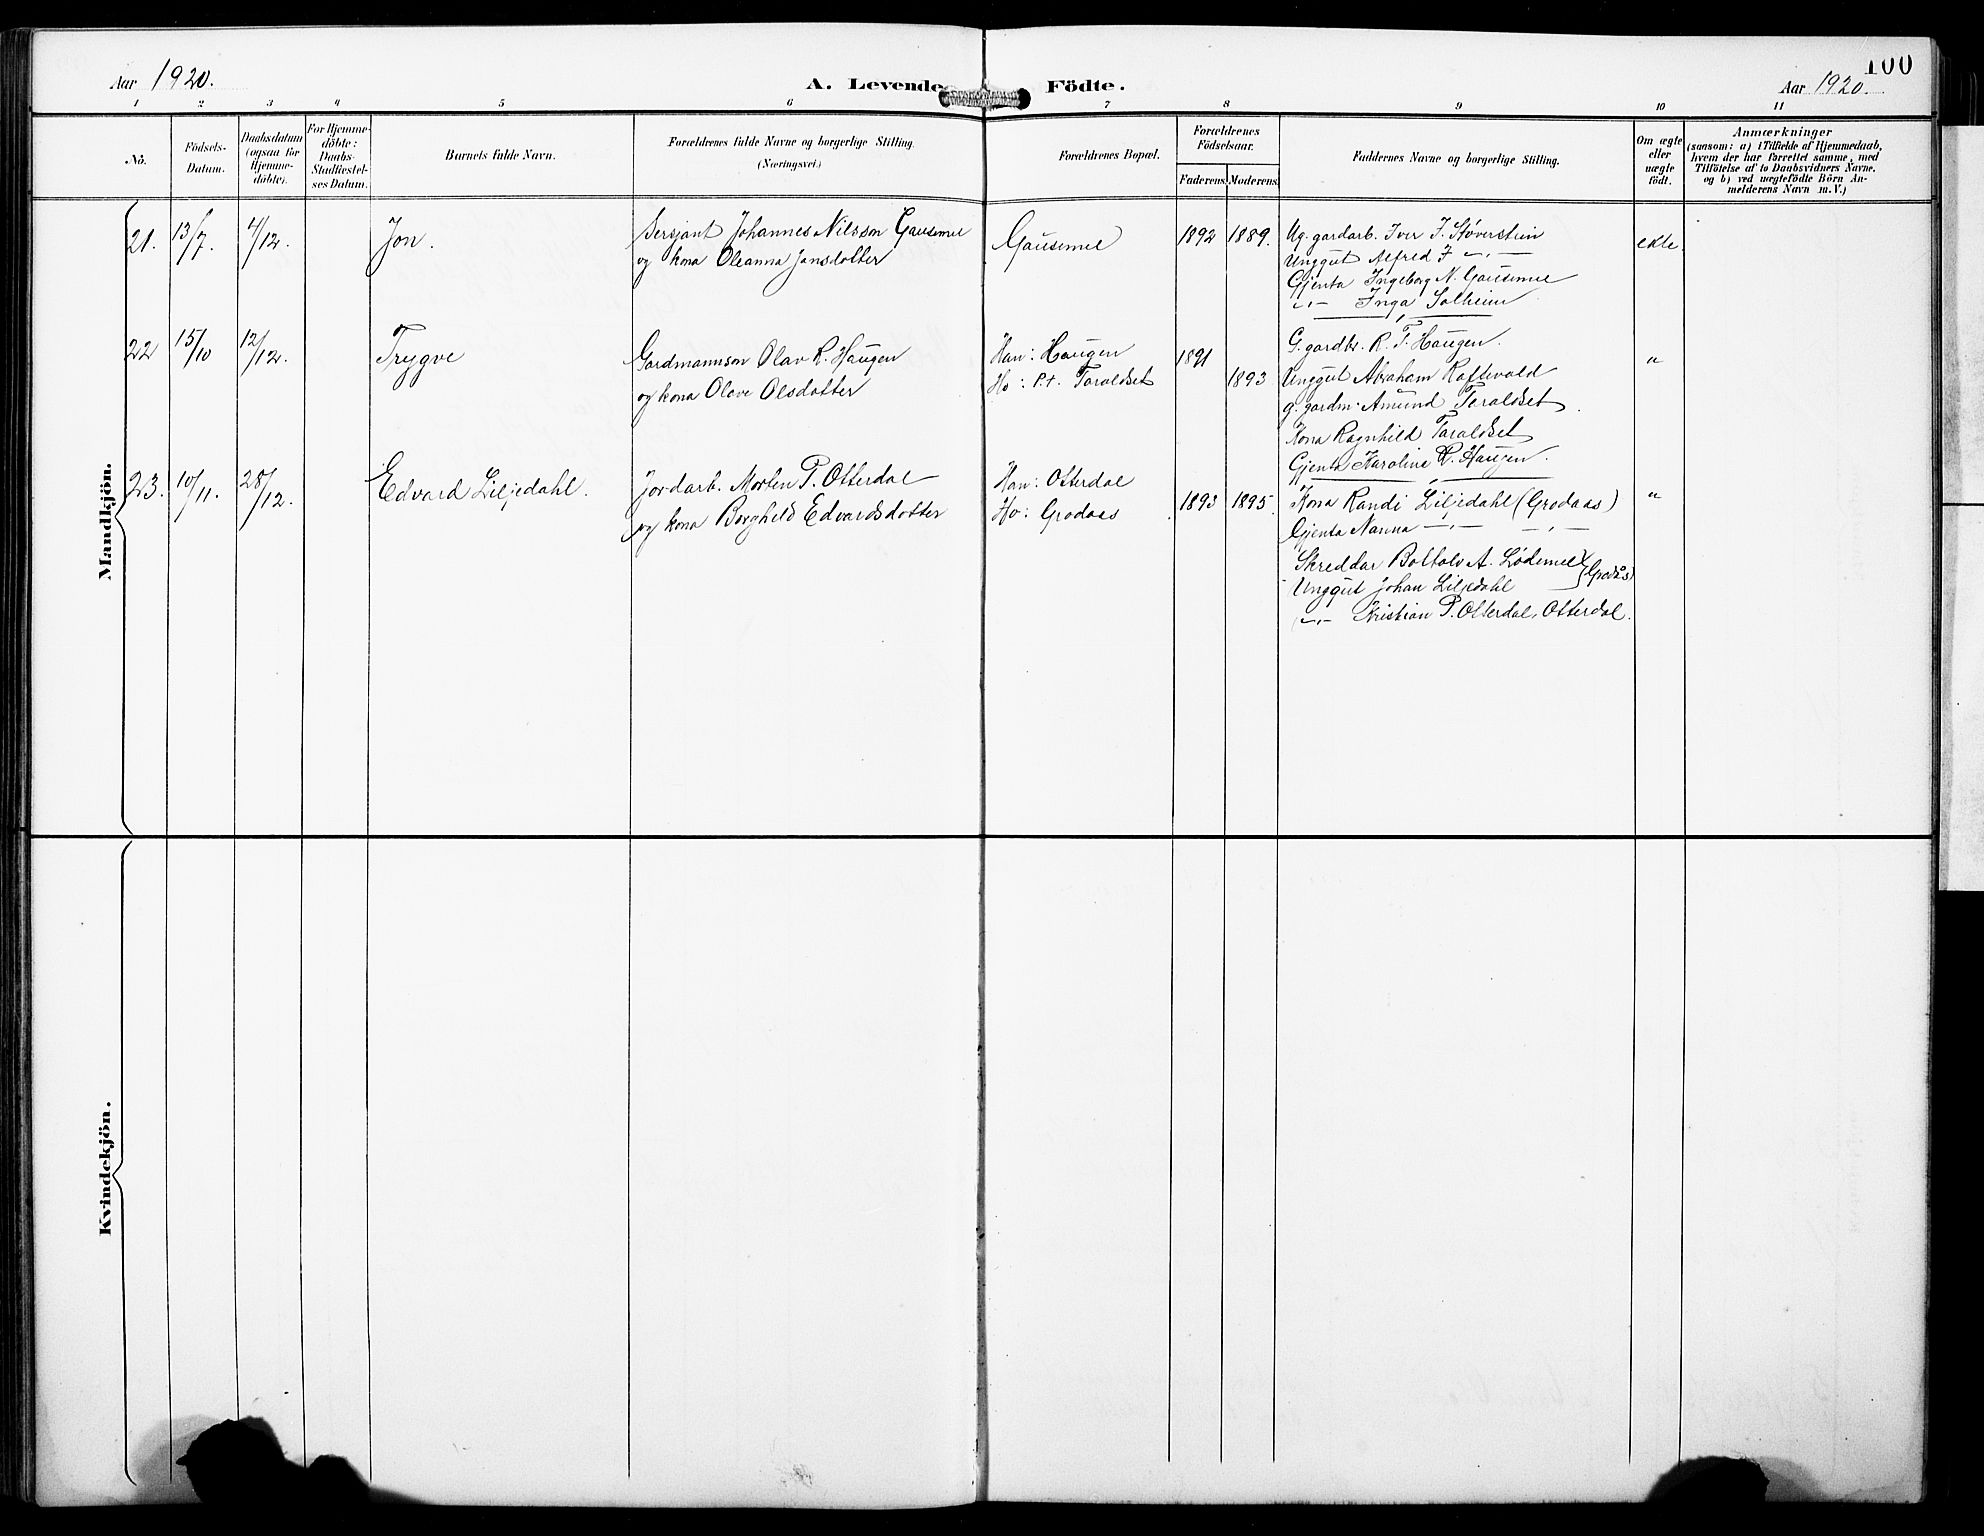 Aar 1920.
A. Levende Födte.
100
Aar 1920.
1 2 3 4 5 6 7 8 9 10 11
No.
Födsels-
Datum.
Daabsdatum
(ogsaa for
Hjemme-
döbte).
For Hjemme-
döbte:
Daabs-
Stadfæstel-
ses Datum.
Barnets fulde Navn.
Forældrenes fulde Navne og borgerlige Stilling.
(Næringsvei.)
Forældrenes Bopæl.
Forældrenes
Födselsaar.
Faderens. Moderens.
Faddernes Navne og borgerlige Stilling.
Om ægte
eller
uægte
födt.
Anmærkninger
(saasom: a) i Tilfælde af Hjemmedaab,
hvem der har forrettet samme, med
Tilföielse af to Daabsvidners Navne.
og b) ved uægtefödte Börn An-
melderens Navn m. V.)
Mandkjön.
21. 13/7. 4/12. Jon. Sersjant Johannes Nilsson Gausemel
og kona Oleanna Jonsdotter
Gausemel 1892 1889.
Ug. gardarb. Iver J. Støverstein
Unggut Alfred J -"-
Gjenta Ingeborg N. Gausemel
-"- Inga Solheim
ekte.
22 15/10 12/12. Trygve Gardmannson Olav R. Haugen
og kona Olave Olsdotter
Han: Haugen
Ho: p.t. Taraldset
1891 1893
G. gardbr. R. T. Haugen.
Unggut Abraham Raftevold
g. gardm. Amund Taraldset.
Kona Ragnhild Taraldset
Gjenta Karoline R. Haugen.
"
23. 10/11. 28/12. Edvard Liljedahl. Jordarb. Morten P. Otterdal
og kona Borghild Edvardsdotter
Han: Otterdal
Ho: Grodaas.
1893 1895.
Kona Randi Liljedahl (Grodaas)
Gjenta Nanna -"- -"-
Skreddar Bottolv A. Lødemel
Unggut Johan Liljedahl
} (Grodås)
-"- Kristian P. Otterdal, Otterdal.
"
Kvindekjön.